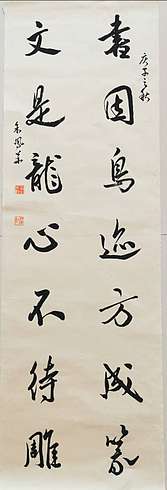 庚子之秋
書因鳥迹方成篆
文是龍心不待雕